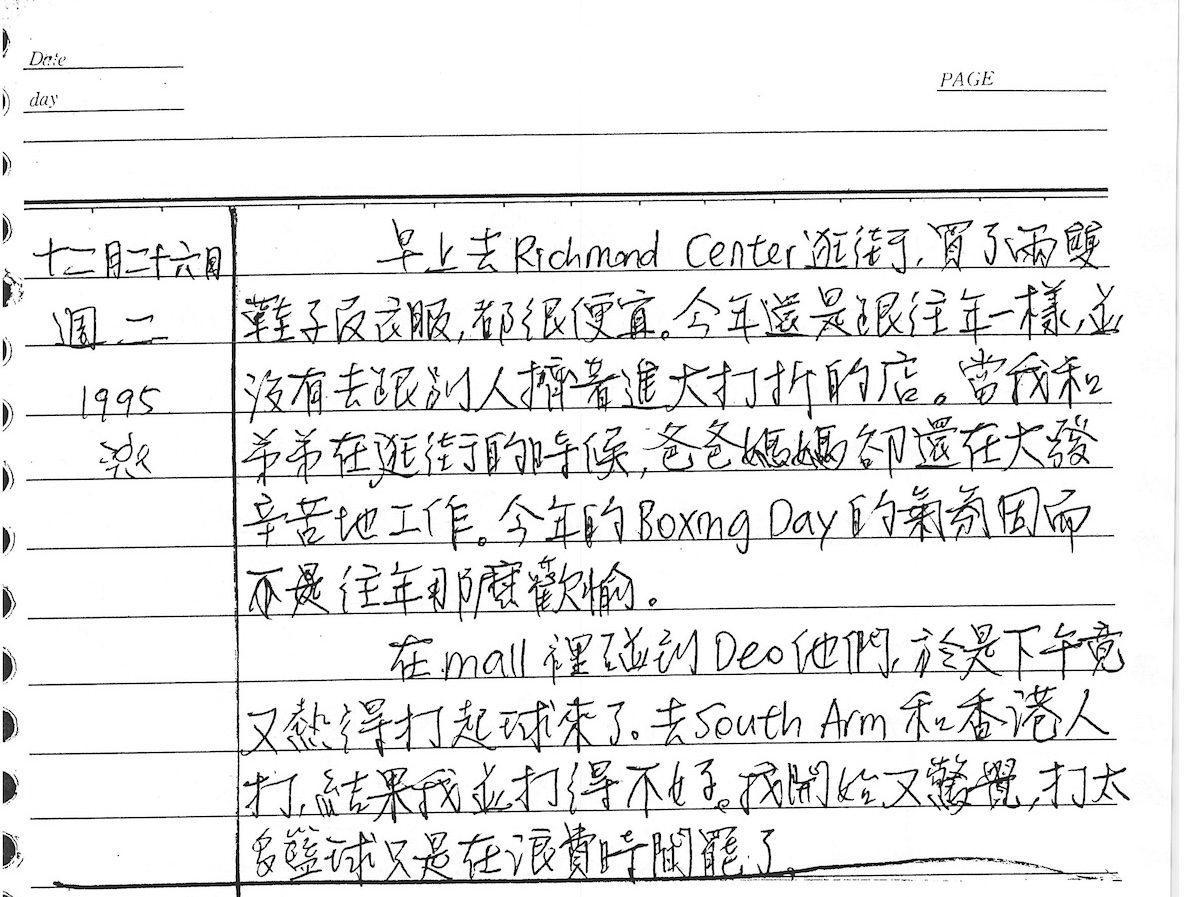 Date
day
PAGE
十二月二十六日
週二
1995
早上去Richmond Center逛街,買了兩雙
鞋子及衣服,都很便宜。今年還是跟往年一樣,並
沒有去跟別人擠著進大打折的店。當我和
弟弟在逛街的時候,爸爸媽媽卻還在大發
辛苦地工作。今年的Boxing Day的氣氛因而
不是往年那麼歡愉。
在mall裡碰到Deo他們,於是下午竟
又熱得打起球來了。去South Arm和香港人
打,結果我並打得不好。我開始又驚覺,打太
多籃球只是在浪費時間罷了。